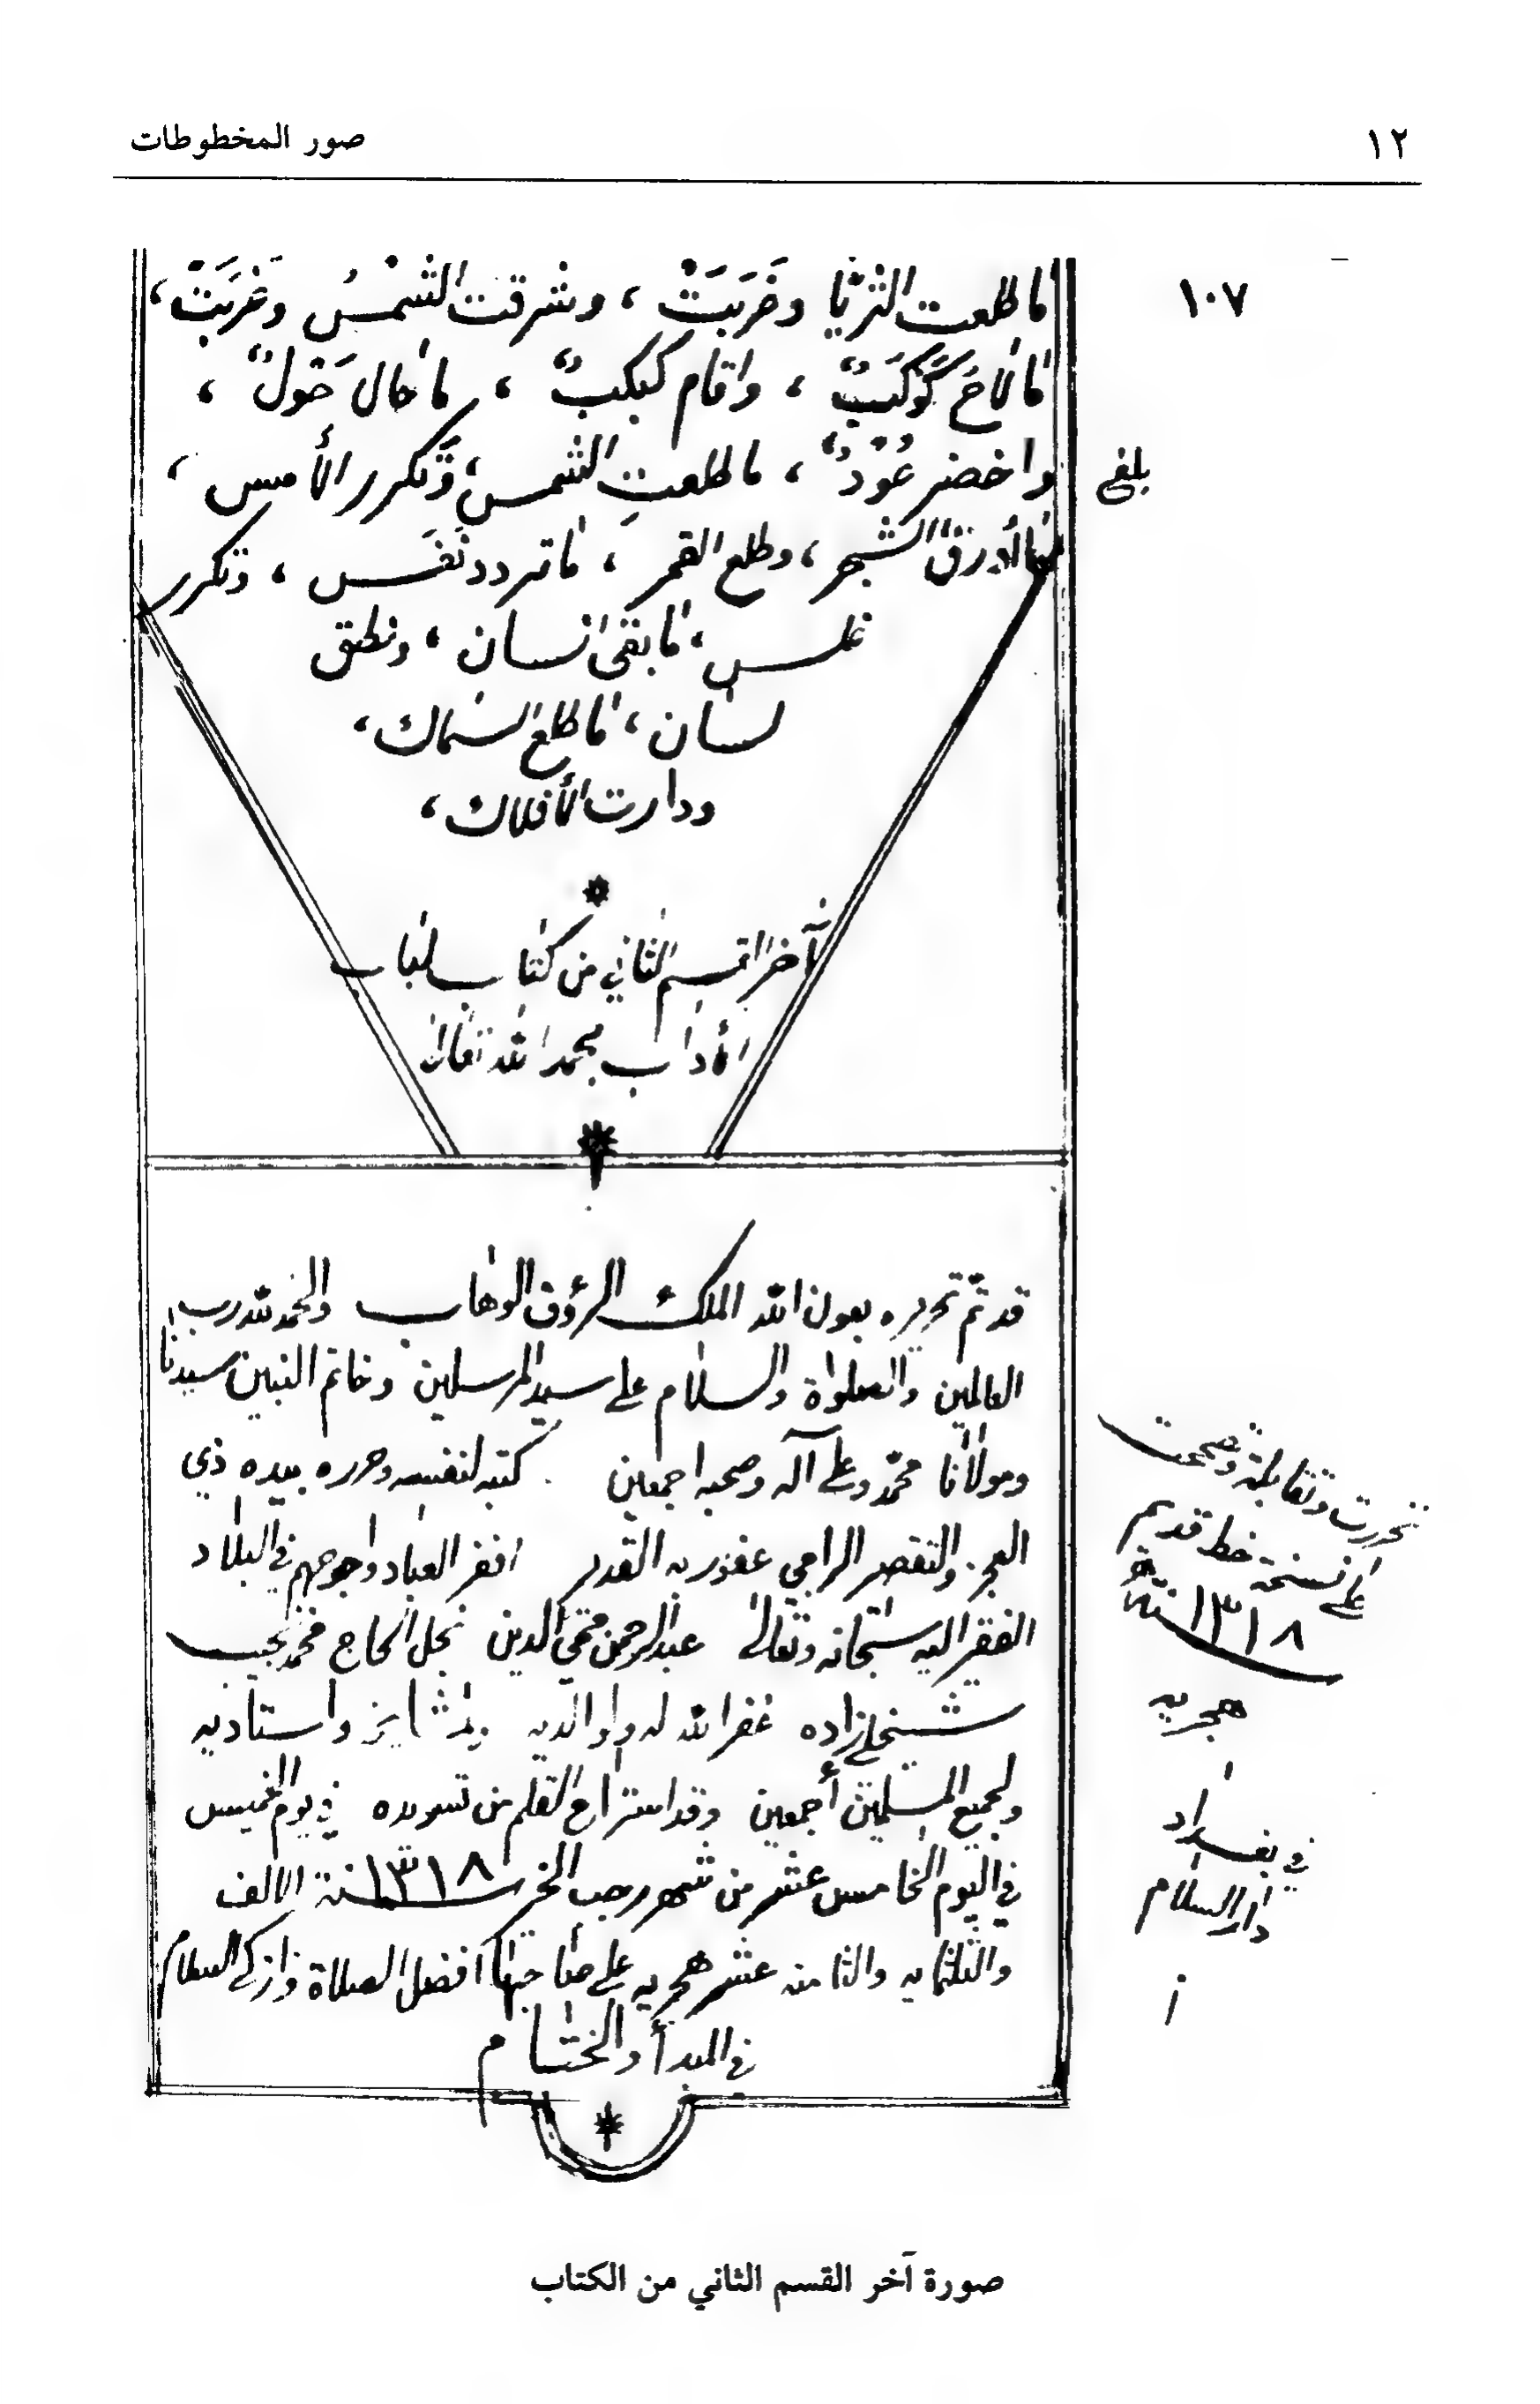 ١٢
صور المخطوطات
١٠٧
ما طلعت الثريا وغَرَبَتْ ، وشرقت الشمسُ وغَرَبَتْ ،
ما لاحَ كَوْكَبٌ ، واقام كبكبٌ ، ما حال حَوْلٌ ،
واخضر عُوْدٌ ، ما طلعتِ الشمس ، وتكرر الأمس ،
بلغ
ما أورق الشجر ، وطلع القمر ، ما تردد نَفَس ، وتكرر
غلس ، ما بقى انسان ، ونطق
لسان ، ما طلع السماك ،
ودارت الأفلاك ،
آخر القسم الثاني من كتاب لباب
الأداب بحمد الله تعالى
قد تم تحريره بعون الله الملك الرؤف الوهاب والحمد لله رب
العالمين والصلواة والسلام على سيد المرسلين وخاتم النبين سيدنا
ومولانا محمد وعلى آله وصحبه اجمعين كتبه لنفسه وحرره بيده ذي
العجز والتقصر الراجي عفو ربه القدير افقر العباد واحوجهم في البلاد
الفقير اليه سبحانه وتعالى عبد الرحمن محي الدين نجل الحاج محمد نجيب
شيخلي زاده غفر الله له ولوالديه واستاديه
ولجميع المسلمين أجمعين وقد استراح القلم من تسويده في يوم الخميس
في اليوم الخامس عشر من شهر رجب الخير سنة ١٣١٨ الالف
والثلثمايه والثامنه عشر هجريه على صاحبها افضل الصلاة وازكى السلام
في المبدأ والختام
تحررت وتقابلة وصححت
على نسخة خط قديم
سنة ١٣١٨
هجريه
في بغداد
دار السلام
صورة آخر القسم الثاني من الكتاب